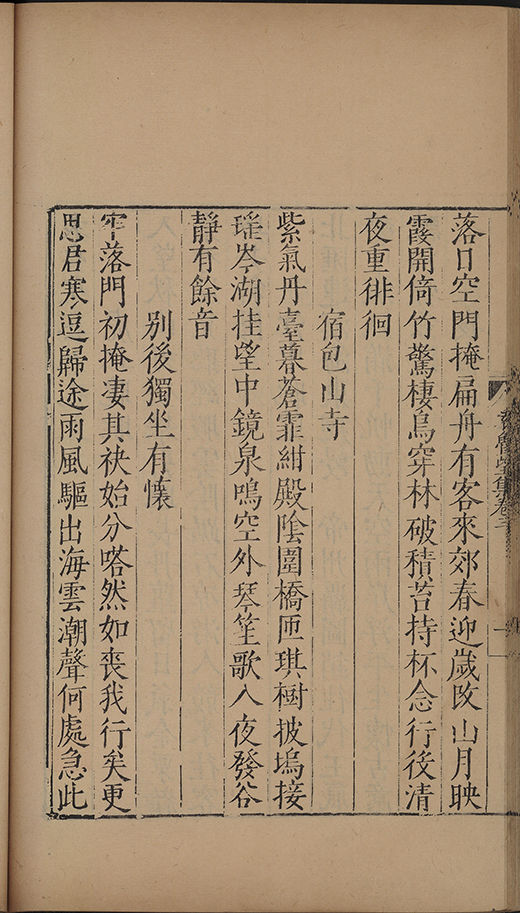 落日空門掩扁舟有客來郊春迎歲改山月映
霞開倚竹驚棲鳥穿林破積苔持杯念行役清
夜重徘徊
宿包山寺
紫氣丹臺暮蒼霏紺殿陰圍橋匝琪樹披塢接
瑶岑湖挂望中鏡泉鳴空外琴笙歌入夜發谷
静有餘音
别後獨坐有懷
牢落門初掩凄其袂始分嗒然如喪我行矣更
思君寒逗歸途雨風驅出海雲潮聲何處急此